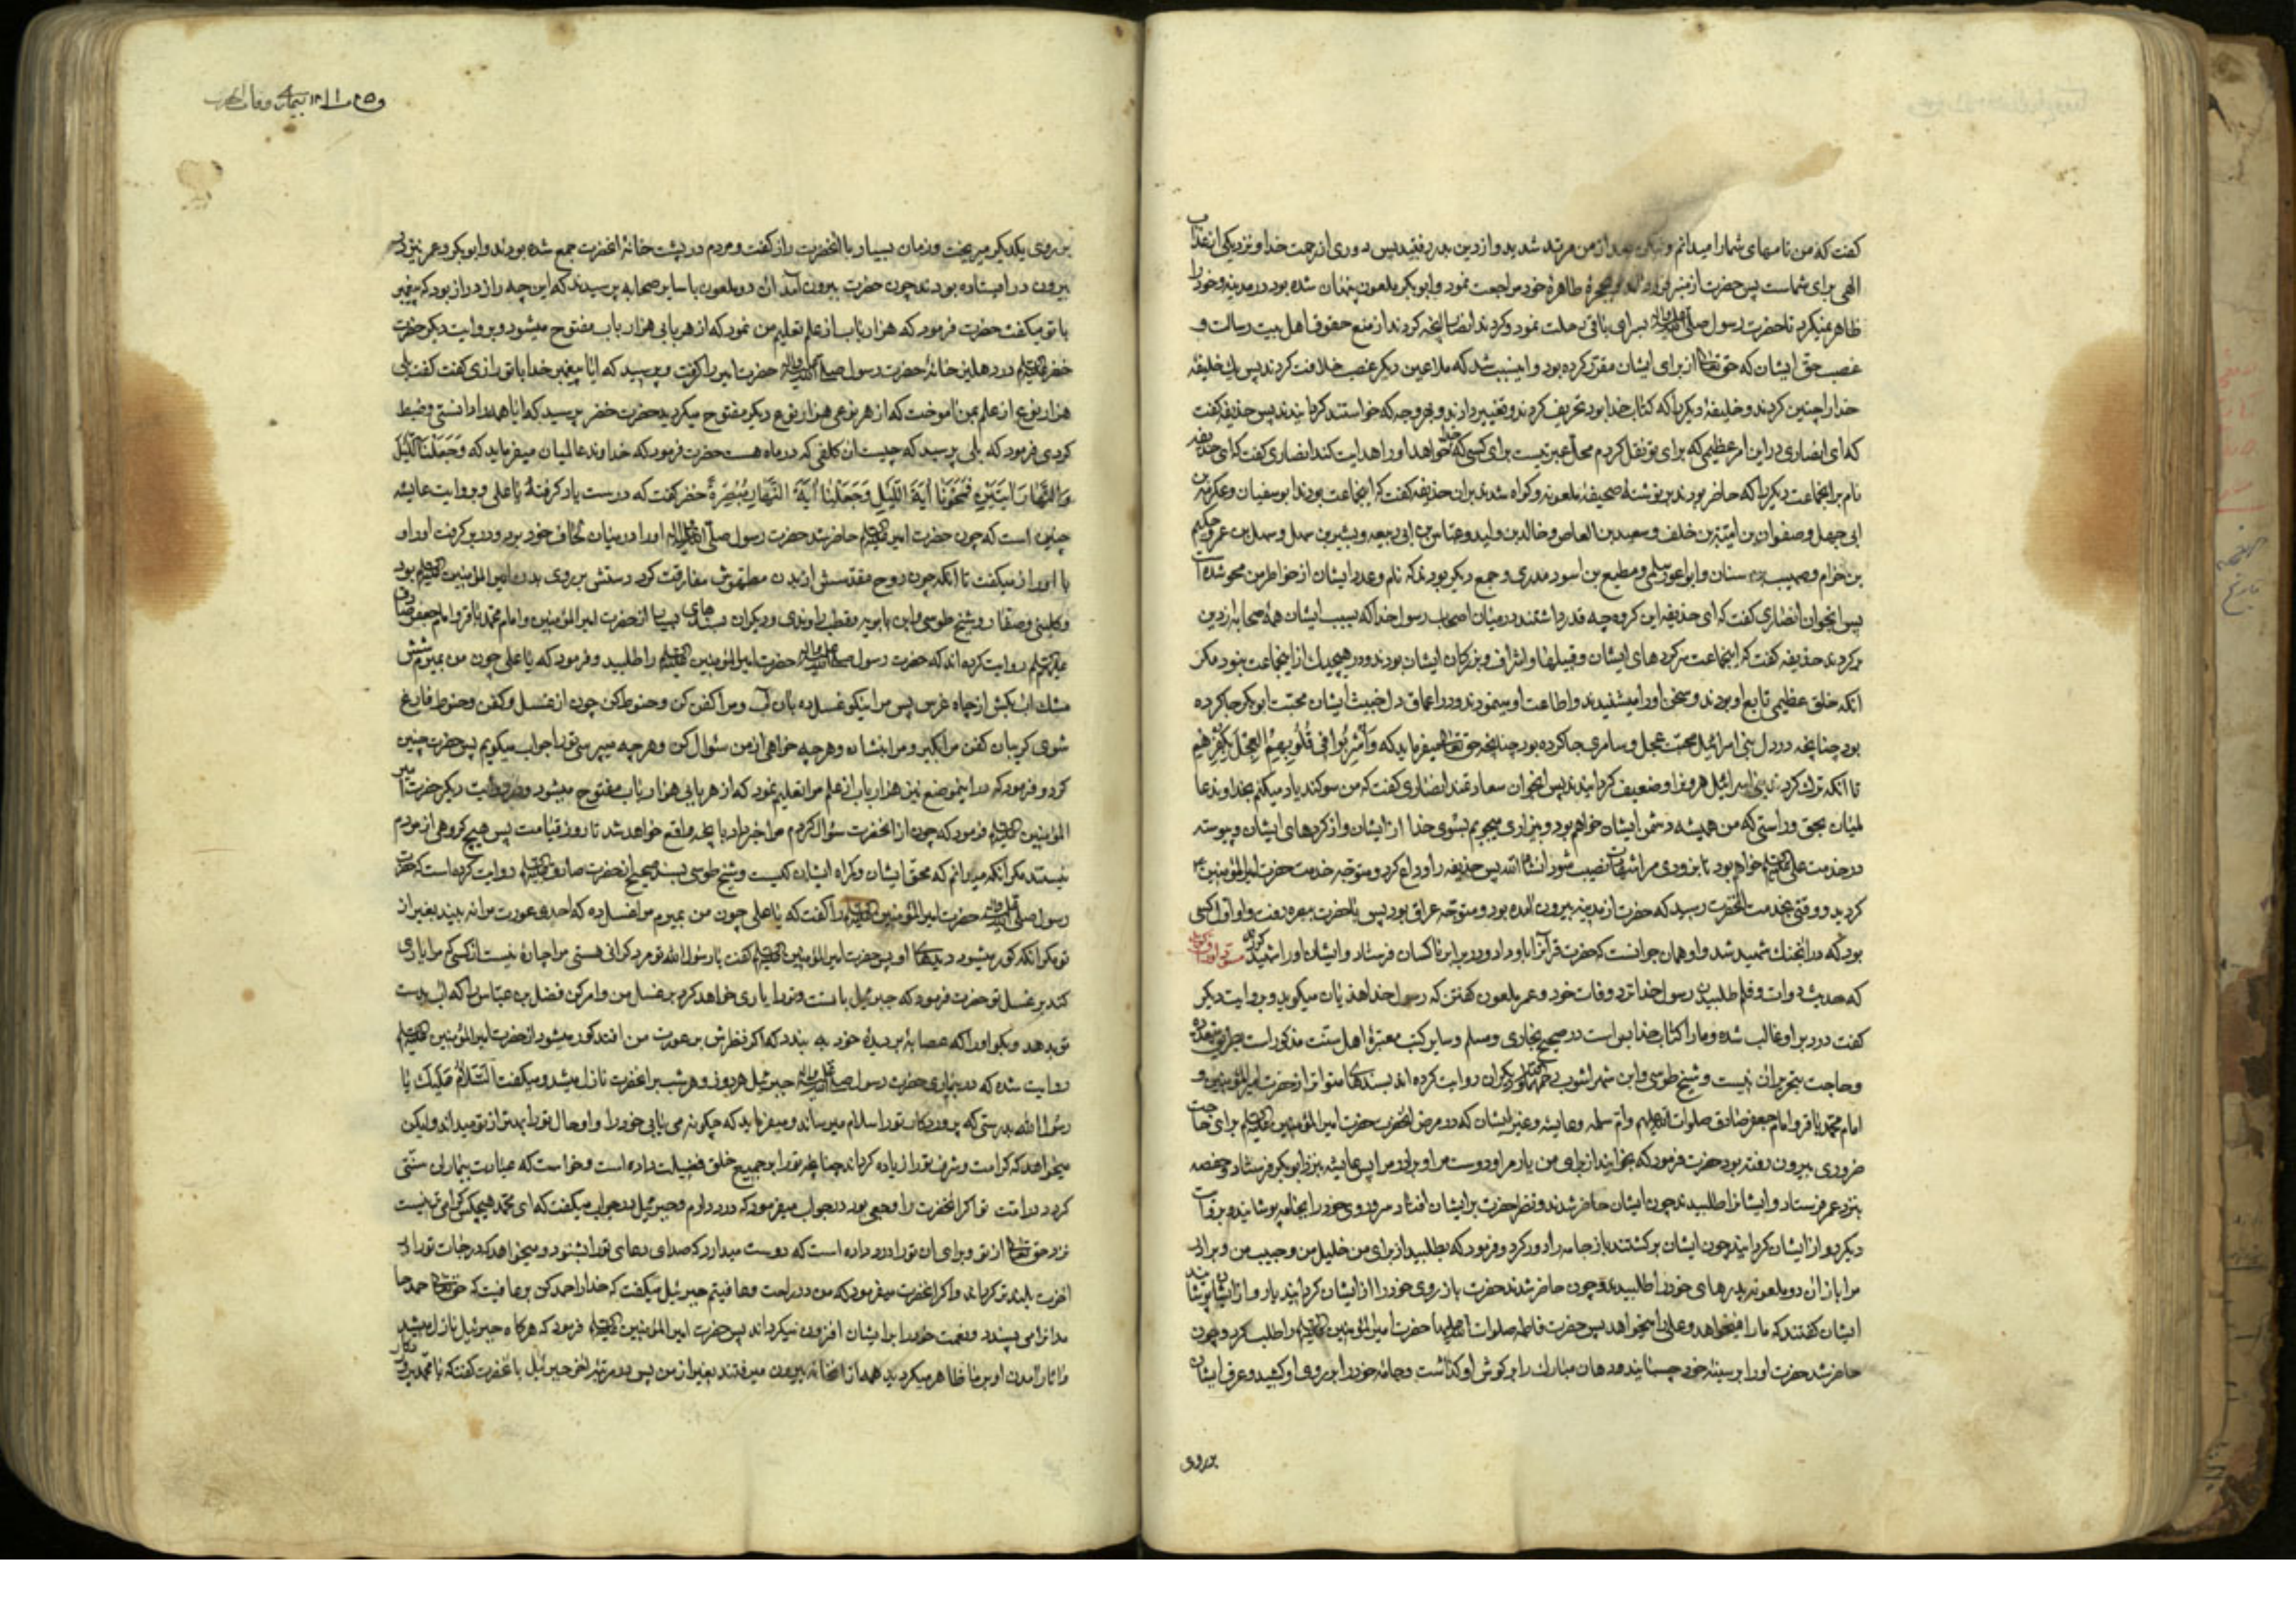 گفت که من نامهای شما را میدانم و لیکن بعد از من مرتد شدید و از دین بدر رفتید پس دوری از رحمت خدا و نزدیکی از عذاب
الهی برای شماست پس حضرت از منبر فرود آمد و بحجرهٔ طاهرهٔ خود مراجعت نمود و ابوبکر ملعون پنهان شده بود در مدینه و خود را
ظاهر نمیکرد تا حضرت رسول صلی الله علیه وآله بسرای باقی رحلت نمود و کردند انصار آنچه کردند از منع حقوق اهل بیت رسالت و
غصب حق ایشان که حق تعالی از برای ایشان مقرر کرده بود و این سبب شد که ملاعین دیگر غصب خلافت کردند پس یک خلیفهٔ
خدا را چنین کردند و خلیفهٔ دیگر را که کتاب خدا بود تحریف کردند و تغییر دادند و بهر وجه که خواستند گردانیدند پس حذیفه گفت
که ای انصاری در این امر عظیمی که برای تو نقل کردم محل عبرتیست برای کسی که خدا خواهد او را هدایت کند انصاری گفت که ای حذیفه
نام بر آنجماعت دیگر را که حاضر بودند بر نوشتهٔ صحیفهٔ ملعونه و گواه شدند بر آن حذیفه گفت که آنجماعت بودند ابوسفیان و عکرمة بن
ابی جهل و صفوان بن امیّة بن خلف و سعید بن العاص و خالد بن ولید و عیاش بن ابی ربیعه و بشیر بن سعد و سهل بن عمرو و حکیم
بن حزام و صهیب بن سنان و ابو اعور سلمی و مطیع بن اسود مدری و جمع دیگر بودند که نام و عدد ایشان از خاطر من محو شده است
پس آنجوان انصاری گفت که ای حذیفه این گروه چه قدر داشتند در میان اصحاب رسول خدا که بسبب ایشان همهٔ صحابه از دین
برگردند حذیفه گفت که اینجماعت سرکردهای ایشان و قبیلها و اشراف و بزرگان ایشان بودند و در هیچیک از اینجماعت نبود مگر
آنکه خلق عظیمی تابع او بودند و سخن او را میشنیدند و اطاعت او مینمودند و در اعماق دل خبیث ایشان محبت ابوبکر جا کرده
بود چنانچه در دل بنی اسرائیل محبت عجل و سامری جا کرده بود چنانچه حق تعالی میفرماید که وَاُشْرِبُوا فی قُلُوبِهِمُ الْعِجْلَ بِکُفْرِهِمْ
تا آنکه ترک کردند بنی اسرائیل هارون را و ضعیف گردانیدند پس آنجوان سعادتمند انصاری گفت که من سوگند یاد میکنم بخداوند عا
لمیان بحق و راستی که من همیشه دشمن ایشان خواهم بود و بیزاری میجویم بسوی خدا از ایشان و از کردهای ایشان و پیوسته
در خدمت علی علیه السلام خواهم بود تا بزودی مرا شهادت نصیب شود انشاء الله پس حذیفه را وداع کرد و متوجه خدمت حضرت امیر المؤمنین ع
گردید و وقتی بخدمت آنحضرت رسید که حضرت از مدینه بیرون آمده بود و متوجه عراق بود پس با حضرت ببصره رفت و او اول کسی
بود که در آنجنگ شهید شد و او همان جوانست که حضرت قرآن را باو داد و در برابر ناکسان فرستاد و ایشان او را شهید کردند
که حدیث دوات و قلم طلبیدن رسول خدا نزد وفات خود و عمر ملعون گفتن که رسول خدا هذیان میگوید و بروایت دیگر
گفت درد بر او غالب شده و ما را کتاب خدا بس است در صحیح بخاری و مسلم و سایر کتب معتبرهٔ اهل سنت مذکور است بطریق متعدده
و حاجت بتحریر آن نیست و شیخ طوسی و ابن شهر آشوب و دیگران روایت کرده اند بسندهای متواتر از حضرت امیر المؤمنین و
امام محمد باقر و امام جعفر صادق صلوات الله علیهم و ام سلمه و عایشه و غیر ایشان که در مرض آنحضرت حضرت امیر المؤمنین علیه السلام برای حاجت
ضروری بیرون رفته بود حضرت فرمود که بخوانید از برای من یار مرا و دوست مرا و برادر مرا پس عایشه بنزد ابوبکر فرستاد و حفصه
بنزد عمر فرستاد و ایشان را طلبیدند چون ایشان حاضر شدند و نظر حضرت بر ایشان افتاد سر و روی خود را بجامه پوشانید و بروایت
دیگر رو از ایشان گردانید چون ایشان برگشتند باز جامه را دور کرد و فرمود که بطلبید از برای من خلیل من و حبیب من و برادر
مرا باز آن دو ملعونه پدرهای خود را طلبیدند و چون حاضر شدند حضرت باز روی خود را از ایشان گردانید یا رو از ایشان پوشانید
ایشان گفتند که ما را نمیخواهد و علی را میخواهد پس حضرت فاطمه صلوات الله علیها حضرت امیر المؤمنین علیه السلام را طلب کرد و چون
حاضر شد حضرت او را بر سینهٔ خود چسبانید و دهان مبارک را بر گوش او گذاشت و جامهٔ خود را بر روی او کشید و عرق ایشان
بر روی
بر روی یکدیگر میریخت و زمان بسیار با آنحضرت راز گفت و مردم در پشت خانهٔ آنحضرت جمع شده بودند و ابوبکر و عمر نیز در
بیرون در ایستاده بودند چون حضرت بیرون آمد آن دو ملعون با سایر صحابه پرسیدند که این چه راز دراز بود که پیغمبر
با تو میگفت حضرت فرمود که هزار باب از علم تعلیم من نمود که از هر بابی هزار باب مفتوح میشود و بروایت دیگر حضرت
خضر علیه السلام در دهلیز خانهٔ حضرت رسول صلی الله علیه وآله حضرت امیر را گرفت و پرسید که آیا پیغمبر خدا با تو رازی گفت گفت بلی
هزار نوع از علم بمن آموخت که از هر نوعی هزار نوع دیگر مفتوح میگردید حضرت خضر پرسید که آیا همه را دانستی و ضبط
کردی فرمود که بلی پرسید که چیست آن کلفی که در ماه هست حضرت فرمود که خداوند عالمیان میفرماید که وَجَعَلْنَا اللَّیْلَ
وَالنَّهَارَ آیَتَیْنِ فَمَحَوْنَا آیَةَ اللَّیْلِ وَجَعَلْنَا آیَةَ النَّهَارِ مُبْصِرَةً خضر گفت که درست یاد گرفتهٔ یا علی و بروایت عایشه
چنین است که چون حضرت امیر علیه السلام حاضر شد حضرت رسول صلی الله علیه وآله او را در میان لحاف خود برد و در بر گرفت او را و
با او راز میگفت تا آنکه چون روح مقدسش از بدن مطهرش مفارقت کرد دستش بر روی بدن امیر المؤمنین علیه السلام بود
و کلینی و صفار و شیخ طوسی و ابن بابویه و قطب راوندی و دیگران بسندهای بسیار از حضرت امیر المؤمنین و امام محمد باقر و امام جعفر صادق
علیهم السلام روایت کرده اند که حضرت رسول صلی الله علیه وآله حضرت امیر المؤمنین علیه السلام را طلبید و فرمود که یا علی چون من بمیرم شش
مشک آب بکش از چاه غرس پس مرا نیکو غسل ده بآن آب و مرا کفن کن و حنوط کن چون از غسل و کفن و حنوط فارغ
شوی گریبان کفن مرا بگیر و مرا بنشان و هر چه خواهی از من سئوال کن و هر چه میپرسی تو را جواب میگویم پس حضرت چنین
کرد و فرمود که در اینموضع نیز هزار باب از علم مرا تعلیم نمود که از هر بابی هزار باب مفتوح میشود و بروایت دیگر حضرت امیر
المؤمنین علیه السلام فرمود که چون از آنحضرت سئوال کردم مرا خبر داد بآنچه واقع خواهد شد تا روز قیامت پس هیچ گروهی از مردم
نیستند مگر آنکه میدانم که محق ایشان و گمراه ایشان کیست و شیخ طوسی بسند صحیح از حضرت صادق علیه السلام روایت کرده است که حضرت
رسول صلی الله علیه وآله حضرت امیر المؤمنین علیه السلام را گفت که یا علی چون من بمیرم مرا غسل ده که احدی عورت مرا نه بیند بغیر از
تو مگر آنکه کور میشود دیدهای او پس حضرت امیر المؤمنین علیه السلام گفت یا رسول الله تو مرد گرانی هستی مرا چاره نیست از کسی که مرا یاری
کند بر غسل تو حضرت فرمود که جبرئیل با تست و تو را یاری خواهد کرد بر غسل من و امر کن فضل بن عباس را که آب بدست
تو بدهد و بگو او را که عصابهٔ بر دیدهٔ خود به بندد که اگر نظرش بر عورت من افتد کور میشود از حضرت امیر المؤمنین علیه السلام
روایت شده که در بیماری حضرت رسول صلی الله علیه وآله جبرئیل هر روز و هر شب بر آنحضرت نازل میشد و میگفت السَّلامُ عَلَیْکَ یا
رسول الله بدرستی که پروردگار تو را سلام میرساند و میفرماید که چگونه می یابی خود را و او حال تو را بهتر از تو میداند ولیکن
میخواهد که کرامت و شرف تو را زیاده گرداند چنانچه تو را بر جمیع خلق فضیلت داده است و خواست که عیادت بیماران سنتی
گردد در امت تو اگر آنحضرت را وجعی بود در جواب میفرمود که درد دارم و جبرئیل در جواب میگفت که ای محمد هیچکس گرامی تر نیست
نزد حق تعالی از تو و برای آن تو را درد داده است که دوست میدارد که صدای دعای تو را بشنود و میخواهد که درجات تو را در
آخرت بلند تر گرداند و اگر آنحضرت میفرمود که من در راحت و عافیتم جبرئیل میگفت که خدا را حمد کن بر عافیت که حق تعالی حمد حا
مدانرا می پسندد و نعمت خود را بر ایشان افزون میگرداند پس حضرت امیر المؤمنین علیه السلام فرمود که هرگاه جبرئیل نازل میشد
و آثار آمدن او بر ما ظاهر میگردید همه از آنخانه بیرون میرفتند بغیر از من پس در مرتبهٔ آخر جبرئیل با آنحضرت گفت که یا محمد پروردگار